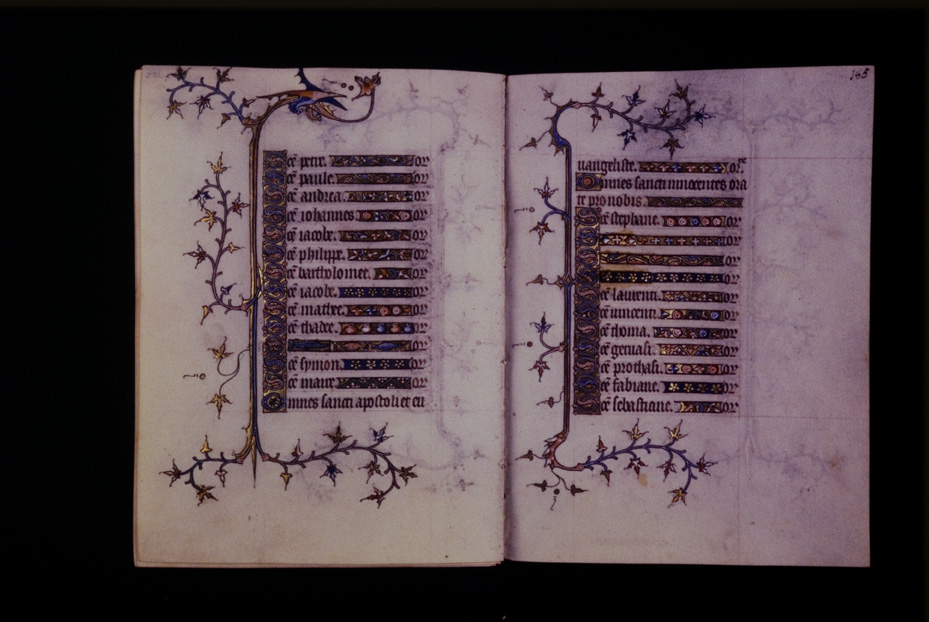 Sce petre. or
Sce paule. or
Sce andrea. or
Sce iohannes. or
Sce iacobe. or
Sce philippe. or
Sce bartholomee. or
Sce iacobe. or
Sce mathee. or
Sce thadee. or
or
Sce symon. or
Sce marce. or
Omnes sancti apostoli et eu
165
uangeliste. or
Omnes sancti innocentes ora
te pro nobis.
Sce stephane. or
or
or
or
Sce laurenti. or
Sce uincenti. or
Sce thoma. or
Sce geruasi. or
Sce prothasi. or
Sce fabiane. or
Sce sebastiane. or